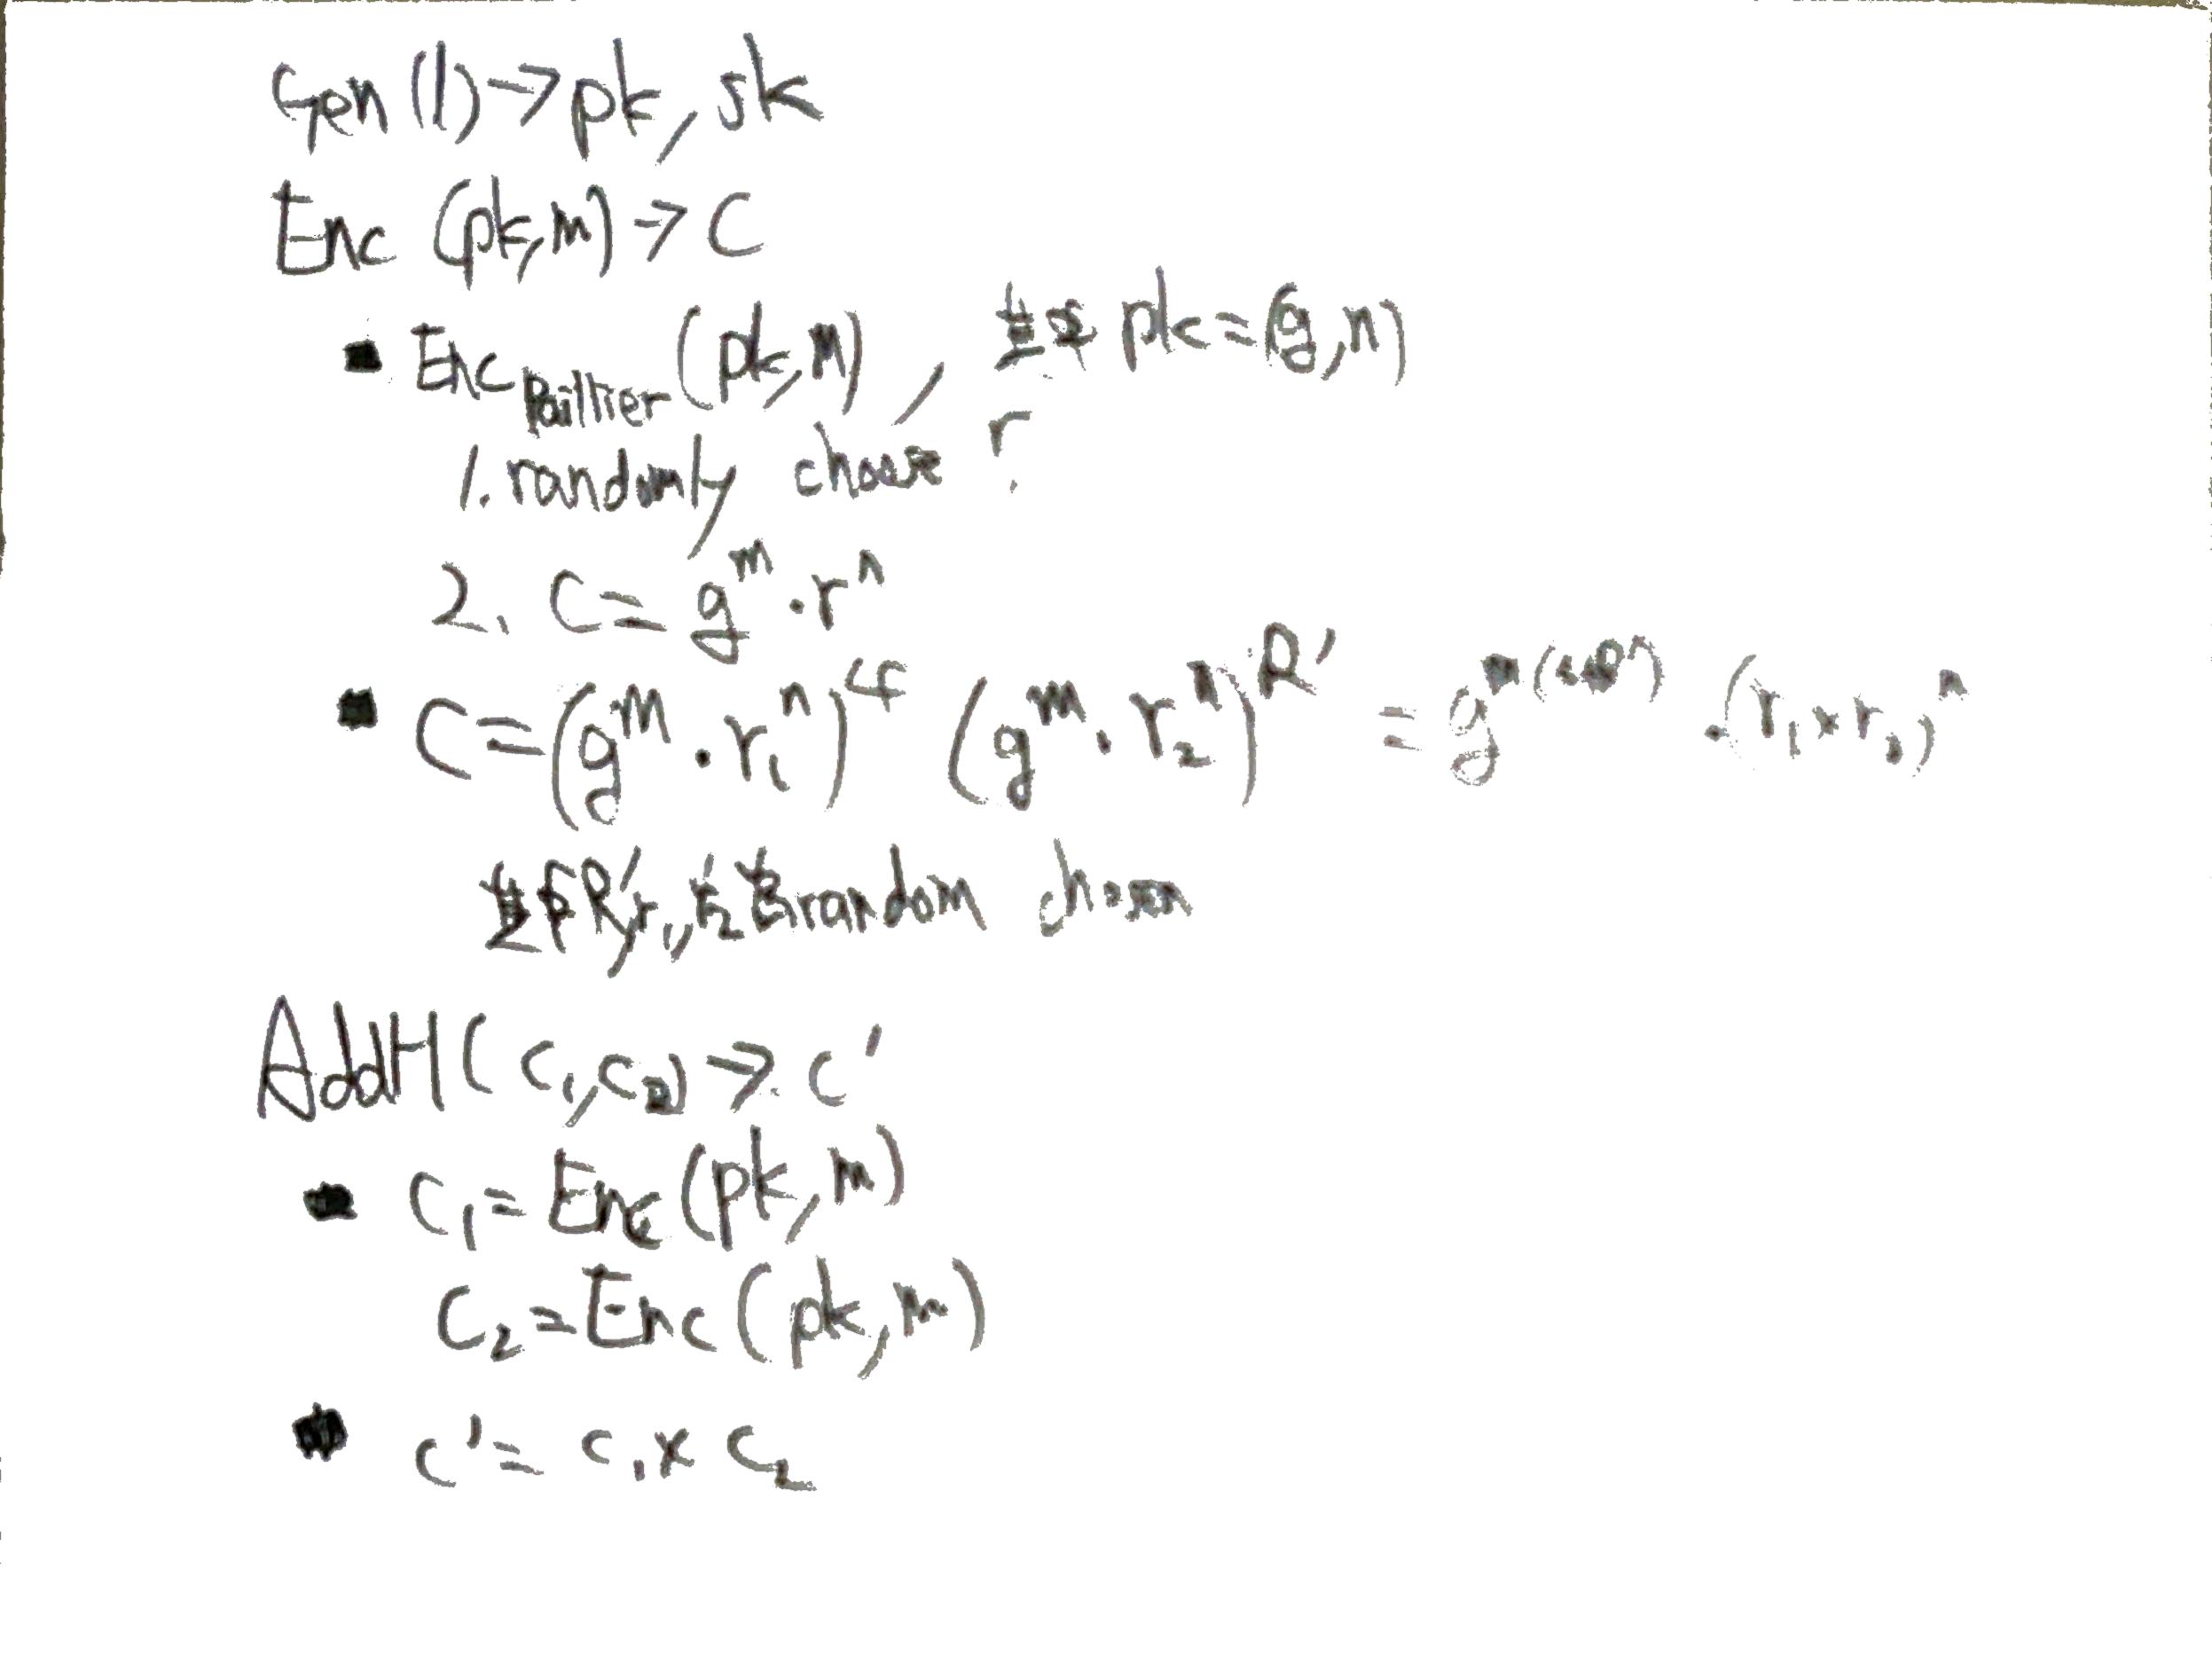 Gen(1)→pk,sk
Enc (pk,m)→C
▪ Enc_Paillier (pk,m), 其中 pk=(g,n)
1. randomly choose r.
2. C= g^m·r^n
▪ C=(g^m·r_1^n)^4 (g^m·r_2^n)^R' = g^m( ) ·(r_1×r_2)^n
其中R',r_1,r_2為random chosen
AddH(c_1,c_2)→c'
▪ C_1=Enc(pk,m)
C_2=Enc(pk,m)
▪ c'= c_1×c_2